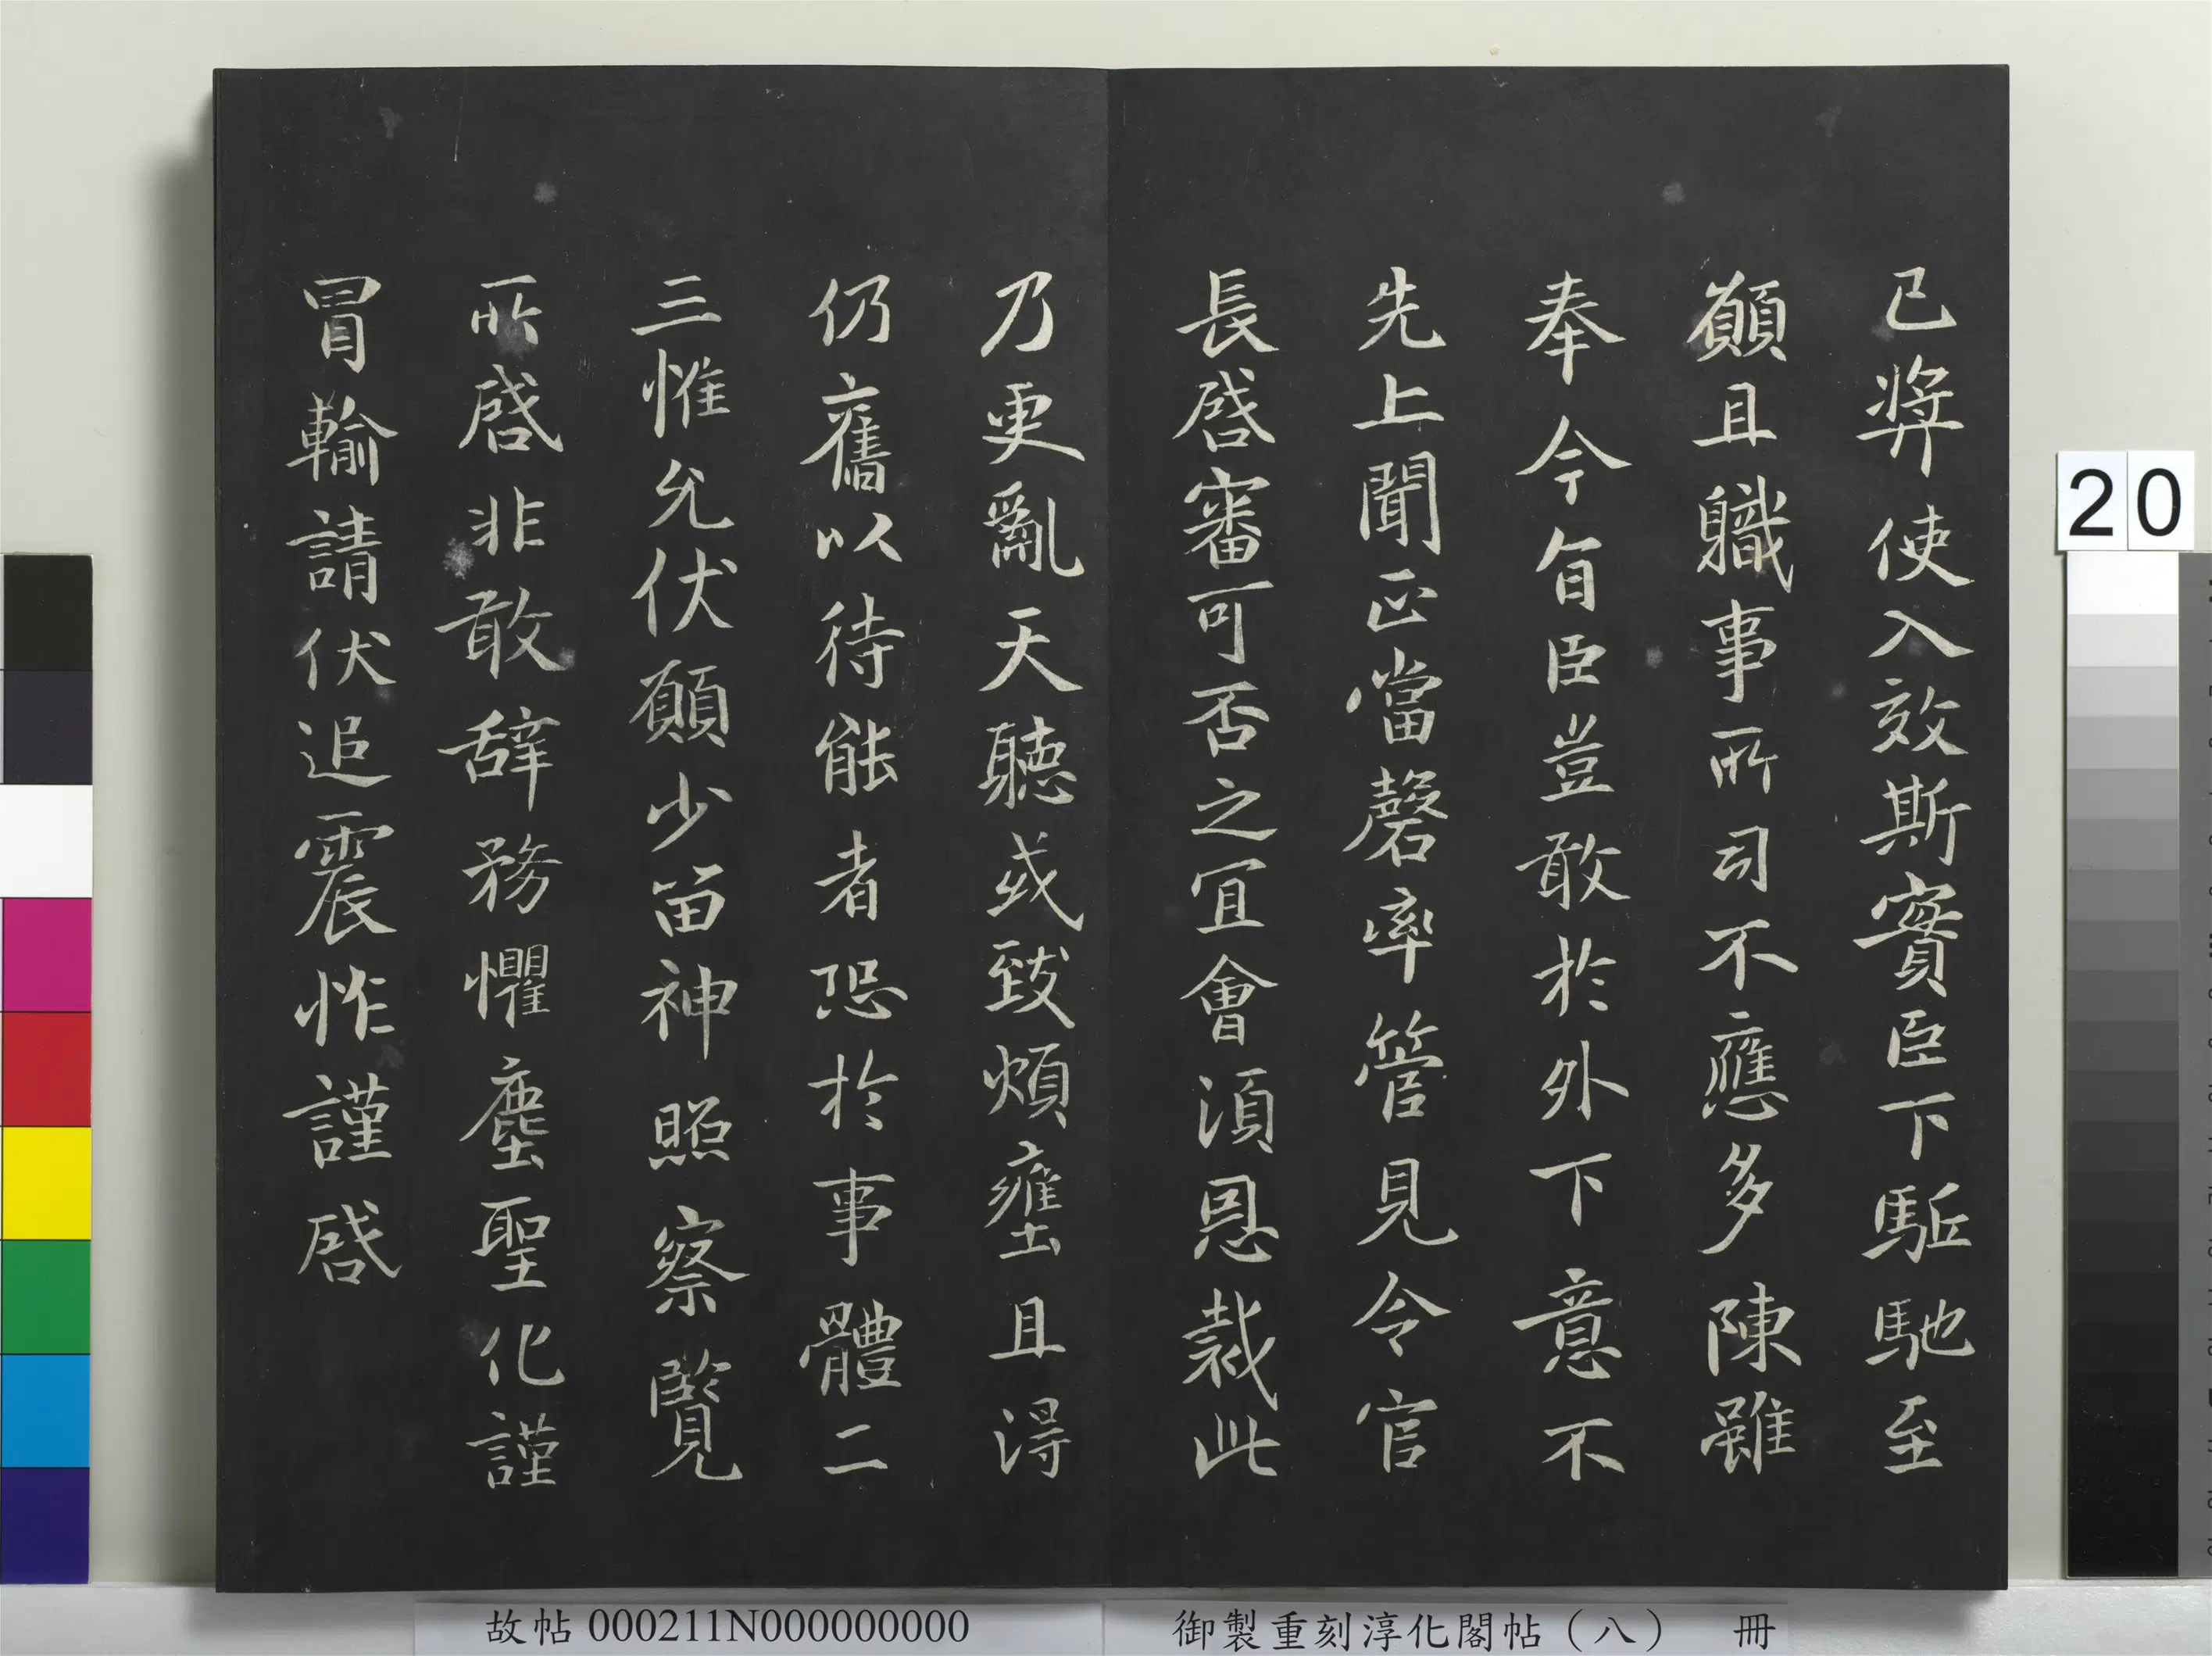 已弊使入效斯實臣下駈馳至
願且職事所司不應多陳雖
奉令旨臣豈敢於外下意不
先上聞正當磬率管見令官
長啓審可否之宜會須恩裁此
乃更亂天聽或致煩壅且得
仍舊以待能者恐於事體二
三惟允伏願少留神照察覽
所啓非敢辞務懼塵聖化謹
冒輸請伏追震怍謹啓
20
故帖 000211N000000000
御製重刻淳化閣帖（八） 冊